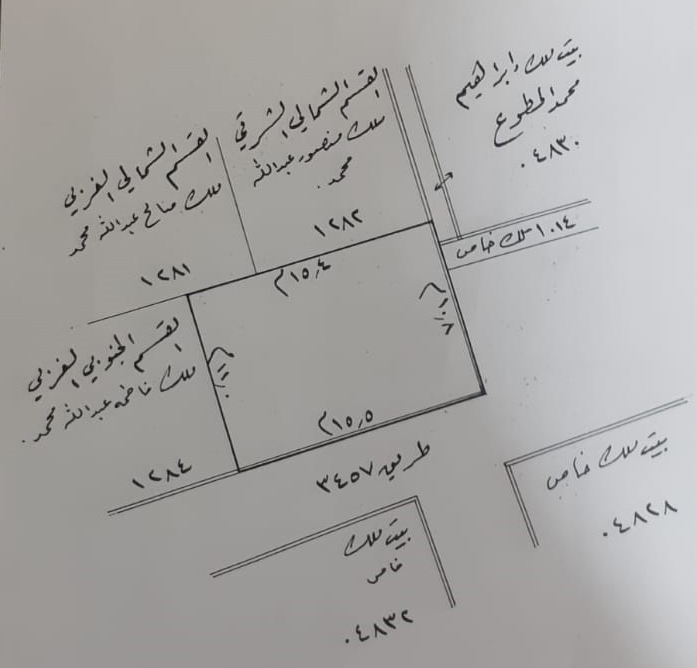 بيت ملك إبراهيم
محمد المطوع
٠٤٨٣٠
القسم الشمالي الشرقي
ملك منصور عبدالله
محمد
١٢٨٢
القسم الشمالي الغربي
ملك صالح عبدالله محمد
١٢٨١
١٠١٤ ملك خاص
١٥٫٤م
١٠٫٨م
١٥٫٥م
القسم الجنوبي الغربي
ملك فاطمه عبدالله محمد
١٢٨٤
طريق ٣٤٥٧
بيت ملك خاص
٠٤٨٢٨
بيت ملك
خاص
٠٤٨٣٢